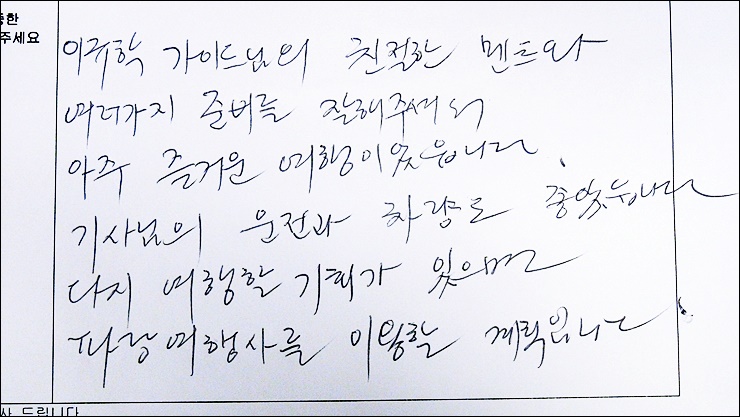 중한
주세요
이귀학 가이드님의 친절한 멘트와
여러가지 준비를 잘해주셔서
아주 즐거운 여행이었읍니다
기사님의 운전과 차량도 좋았읍니다
다시 여행할 기회가 있으면
파랑여행사를 이용할 계획입니다
사 드립니다